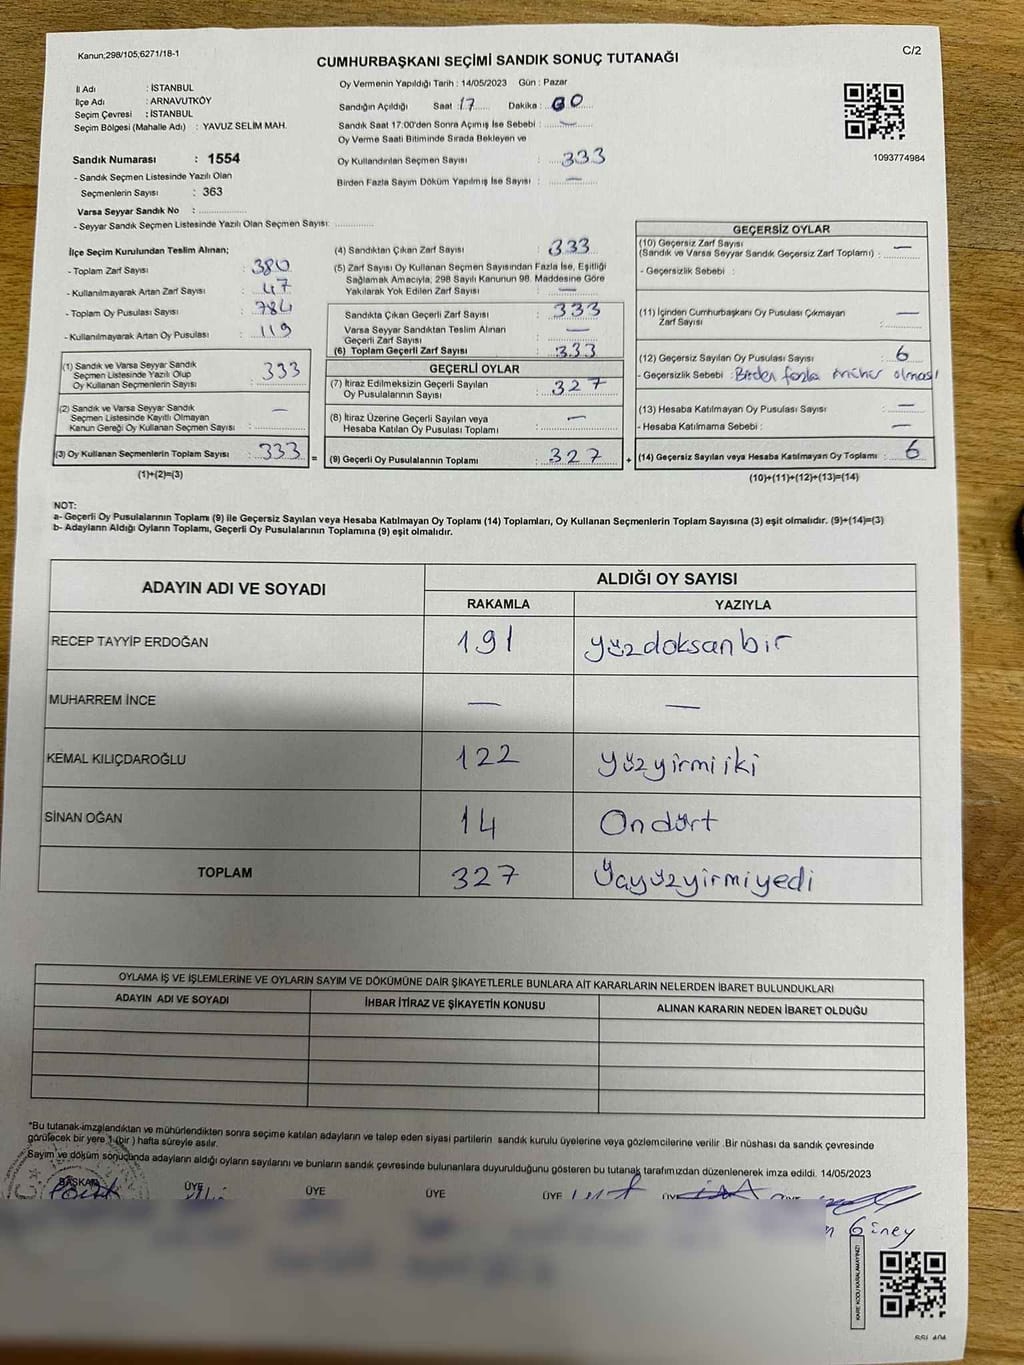 Kanun;298/105;6271/18-1
C/2
CUMHURBAŞKANI SEÇİMİ SANDIK SONUÇ TUTANAĞI
İl Adı : İSTANBUL
İlçe Adı : ARNAVUTKÖY
Seçim Çevresi : İSTANBUL
Seçim Bölgesi (Mahalle Adı) : YAVUZ SELİM MAH.
Sandık Numarası : 1554
- Sandık Seçmen Listesinde Yazılı Olan
Seçmenlerin Sayısı : 363
Varsa Seyyar Sandık No : ..............
- Seyyar Sandık Seçmen Listesinde Yazılı Olan Seçmen Sayısı: ............
Oy Vermenin Yapıldığı Tarih : 14/05/2023 Gün : Pazar
Sandığın Açıldığı Saat : 17 Dakika : 00
Sandık Saat 17:00'den Sonra Açımış İse Sebebi : —
Oy Verme Saati Bitiminde Sırada Bekleyen ve
Oy Kullandırılan Seçmen Sayısı : 333
Birden Fazla Sayım Döküm Yapılmış İse Sayısı : —
1093774984
İlçe Seçim Kurulundan Teslim Alınan;
- Toplam Zarf Sayısı : 380
- Kullanılmayarak Artan Zarf Sayısı : 47
- Toplam Oy Pusulası Sayısı : 784
- Kullanılmayarak Artan Oy Pusulası : 119
(1) Sandık ve Varsa Seyyar Sandık
Seçmen Listesinde Yazılı Olup
Oy Kullanan Seçmenlerin Sayısı : 333
(2) Sandık ve Varsa Seyyar Sandık
Seçmen Listesinde Kayıtlı Olmayan
Kanun Gereği Oy Kullanan Seçmen Sayısı : —
(3) Oy Kullanan Seçmenlerin Toplam Sayısı : 333 =
(1)+(2)=(3)
(4) Sandıktan Çıkan Zarf Sayısı : 333
(5) Zarf Sayısı Oy Kullanan Seçmen Sayısından Fazla İse, Eşitliği
Sağlamak Amacıyla, 298 Sayılı Kanunun 98. Maddesine Göre
Yakılarak Yok Edilen Zarf Sayısı : —
Sandıkta Çıkan Geçerli Zarf Sayısı : 333
Varsa Seyyar Sandıktan Teslim Alınan
Geçerli Zarf Sayısı : —
(6) Toplam Geçerli Zarf Sayısı : 333
GEÇERLİ OYLAR
(7) İtiraz Edilmeksizin Geçerli Sayılan
Oy Pusulalarının Sayısı : 327
(8) İtiraz Üzerine Geçerli Sayılan veya
Hesaba Katılan Oy Pusulası Toplamı : —
(9) Geçerli Oy Pusulalarının Toplamı : 327 +
GEÇERSİZ OYLAR
(10) Geçersiz Zarf Sayısı
(Sandık ve Varsa Seyyar Sandık Geçersiz Zarf Toplamı) : —
- Geçersizlik Sebebi :
(11) İçinden Cumhurbaşkanı Oy Pusulası Çıkmayan
Zarf Sayısı : —
(12) Geçersiz Sayılan Oy Pusulası Sayısı : 6
- Geçersizlik Sebebi : Birden fazla mühür olması
(13) Hesaba Katılmayan Oy Pusulası Sayısı : —
- Hesaba Katılmama Sebebi : —
(14) Geçersiz Sayılan veya Hesaba Katılmayan Oy Toplamı : 6
(10)+(11)+(12)+(13)=(14)
NOT:
a- Geçerli Oy Pusulalarının Toplamı (9) ile Geçersiz Sayılan veya Hesaba Katılmayan Oy Toplamı (14) Toplamları, Oy Kullanan Seçmenlerin Toplam Sayısına (3) eşit olmalıdır. (9)+(14)=(3)
b- Adayların Aldığı Oyların Toplamı, Geçerli Oy Pusulalarının Toplamına (9) eşit olmalıdır.
ADAYIN ADI VE SOYADI ALDIĞI OY SAYISI
RAKAMLA YAZIYLA
RECEP TAYYİP ERDOĞAN 191 yüzdoksanbir
MUHARREM İNCE — —
KEMAL KILIÇDAROĞLU 122 yüzyirmiiki
SİNAN OĞAN 14 Ondört
TOPLAM 327 Üçyüzyirmiyedi
OYLAMA İŞ VE İŞLEMLERİNE VE OYLARIN SAYIM VE DÖKÜMÜNE DAİR ŞİKAYETLERLE BUNLARA AİT KARARLARIN NELERDEN İBARET BULUNDUKLARI
ADAYIN ADI VE SOYADI İHBAR İTİRAZ VE ŞİKAYETİN KONUSU ALINAN KARARIN NEDEN İBARET OLDUĞU
*Bu tutanak-imzalandıktan ve mühürlendikten sonra seçime katılan adayların ve talep eden siyasi partilerin sandık kurulu üyelerine veya gözlemcilerine verilir .Bir nüshası da sandık çevresinde
görülecek bir yere 1 (bir ) hafta süreyle asılır.
Sayım ve döküm sonucunda adayların aldığı oyların sayılarını ve bunların sandık çevresinde bulunanlara duyurulduğunu gösteren bu tutanak tarafımızdan düzenlenerek imza edildi. 14/05/2023
BAŞKAN ÜYE ÜYE ÜYE ÜYE ÜYE ÜYE
Güney
KARE KODU KARALAMAYINIZ!